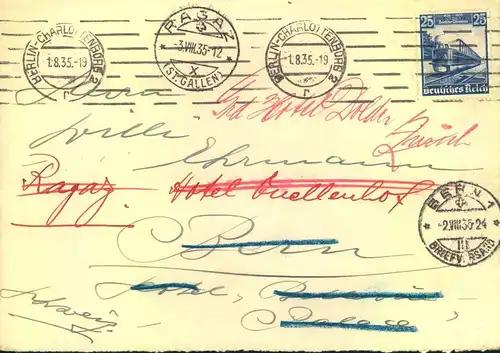 BERLIN-CHARLOTTENBURG 2
1.8.35.-19
r
RAGAZ
-3.VIII.35-12
X
(ST. GALLEN)
BERLIN-CHARLOTTENBURG 2
1.8.35.-19
r
25 25
Deutsches Reich
Grd Hotel Dolder
Zürich
Willy Ehrmann
Ragaz Hotel Quellenhof
BERN 1
-2.VIII.35-24
III
BRIEFVERSAND
Bern
Hotel Bellevue
Palace
Schweiz